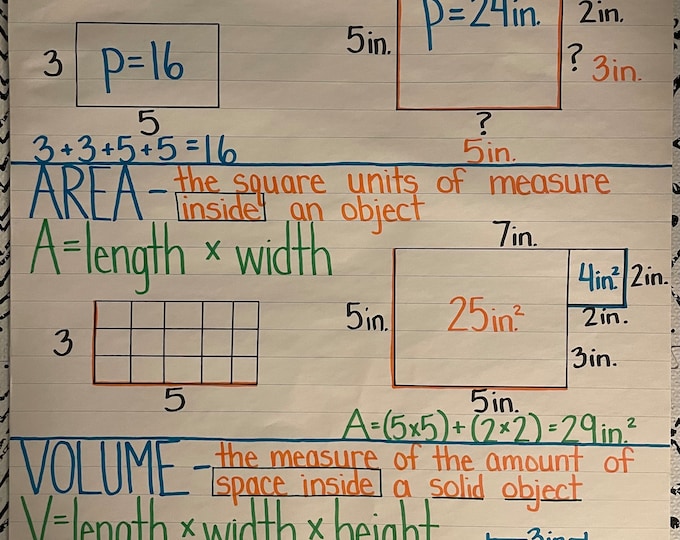 p=24in.
2in.
5in.
3
p=16
?
3in.
5
?
3+3+5+5=16
5in.
AREA- the square units of measure
inside an object
A=length x width
7in.
4in.²
2in.
3
5in.
25in.²
2in.
3in.
5
5in.
A=(5x5)+(2x2)=29in.²
VOLUME- the measure of the amount of
space inside a solid object
V=length x width x height
3in